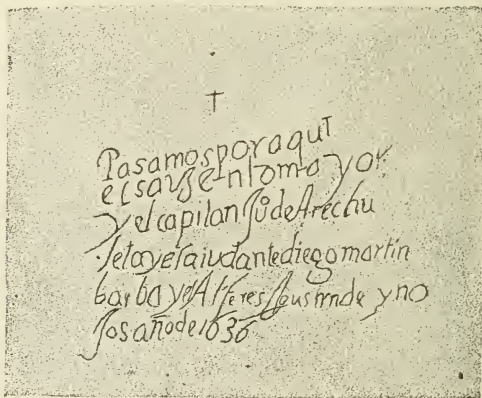 †
Pasamosporaqui
elsarjento mayor
y el capitan Ju de Arechu
letayelaiudantediegomartin
barba yel Alferes Agustin de yno
jos año de 1636